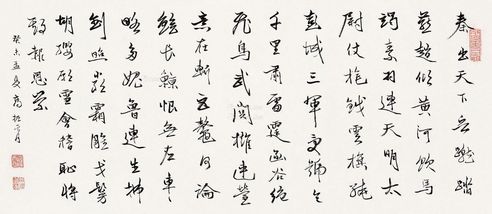 秦出天下兵蹴踏
燕趙傾黃河飲馬
竭赤羽連天明太
尉仗旄鉞雲旗繞
彭城三軍受號令
千里肅雷霆函谷絕
飛鳥武關擁連營
意在斬巨鰲何論
鱠長鯨恨無左車
略多媿魯連生拂
劍照嚴霜雕戈鬘
胡纓願雪會稽恥將
期報恩榮
癸未孟夏